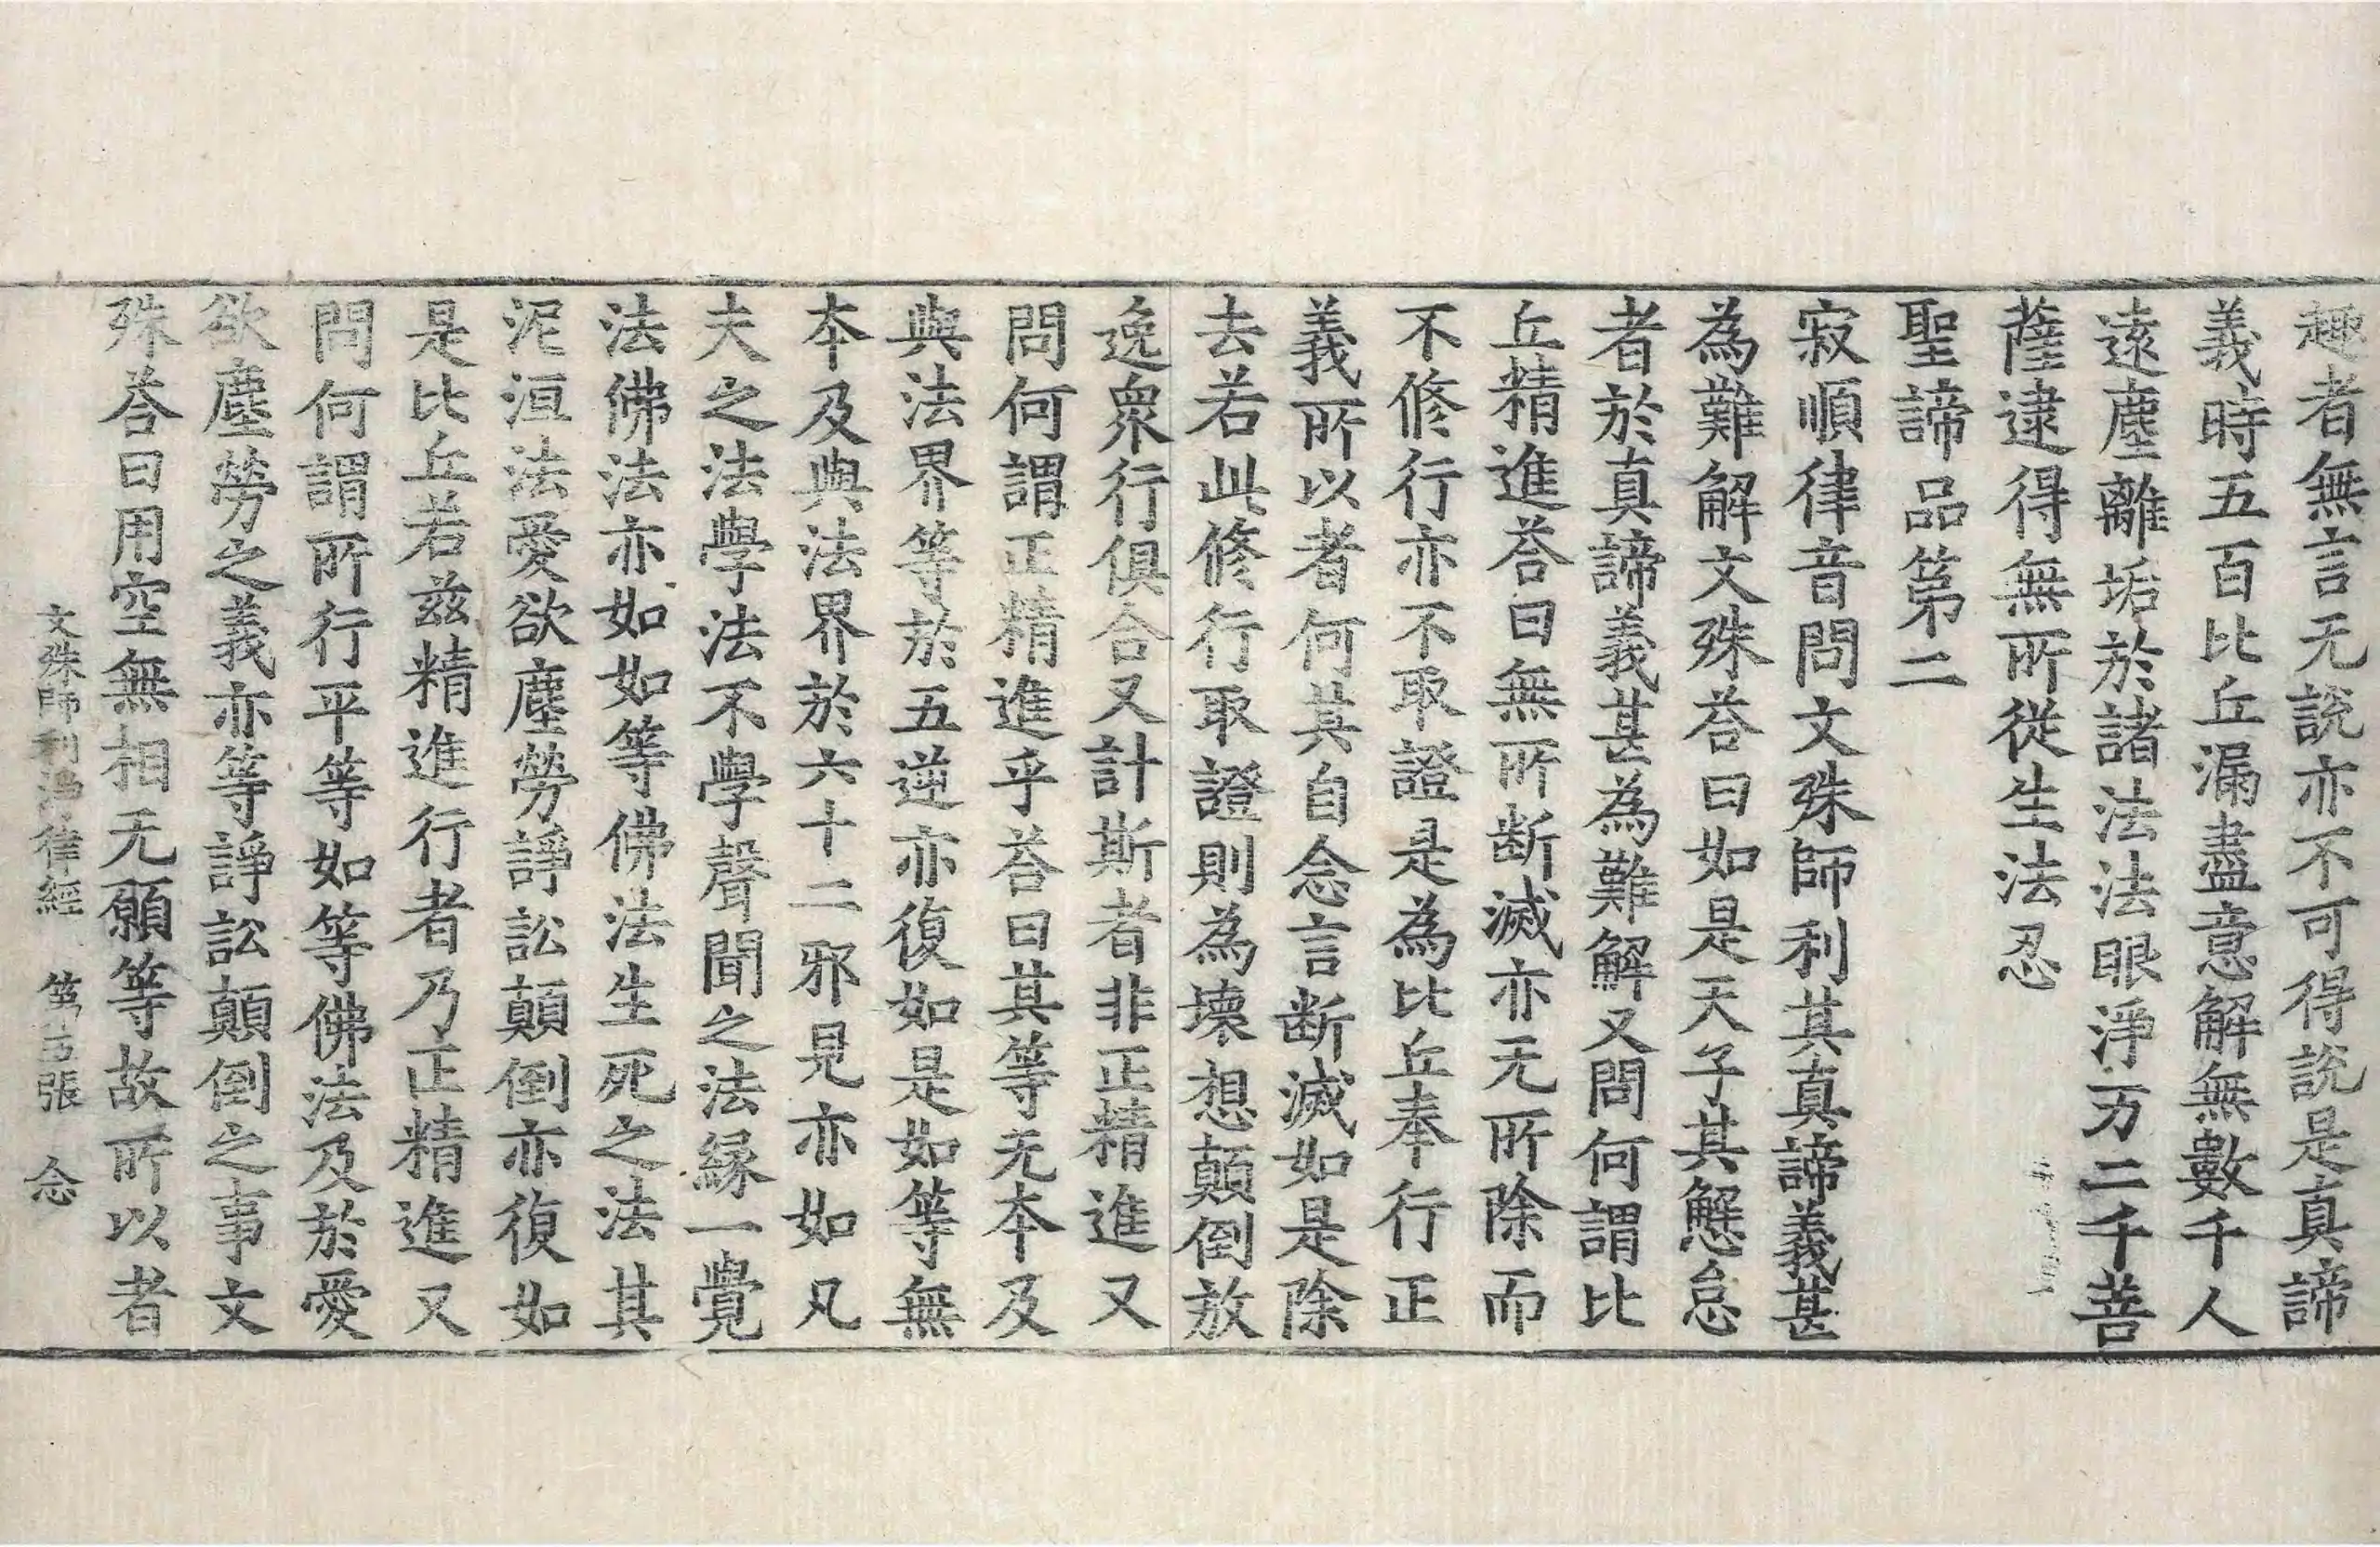 趣者無言无說亦不可得說是真諦
義時五百比丘漏盡意解無數千人
遠塵離垢於諸法法眼淨万二千菩
薩逮得無所從生法忍
聖諦品第二
寂順律音問文殊師利其真諦義甚
為難解文殊荅曰如是天子其懈怠
者於真諦義甚為難解又問何謂比
丘精進荅曰無所断滅亦无所除而
不修行亦不取證是為比丘奉行正
義所以者何其自念言断滅如是除
去若此修行取證則為壊想顛倒放
逸衆行俱合又計斯者非正精進又
問何謂正精進乎荅曰其等无本及
與法界等於五逆亦復如是如等無
本及與法界於六十二邪見亦如凡
夫之法學法不學聲聞之法緣一覺
法佛法亦如如等佛法生死之法其
泥洹法愛欲塵勞諍訟顛倒亦復如
是比丘若兹精進行者乃正精進又
問何謂所行平等如等佛法及於愛
欲塵勞之義亦等諍訟顛倒之事文
殊荅曰用空無相无願等故所以者
文殊師利淨律經 第五張 念